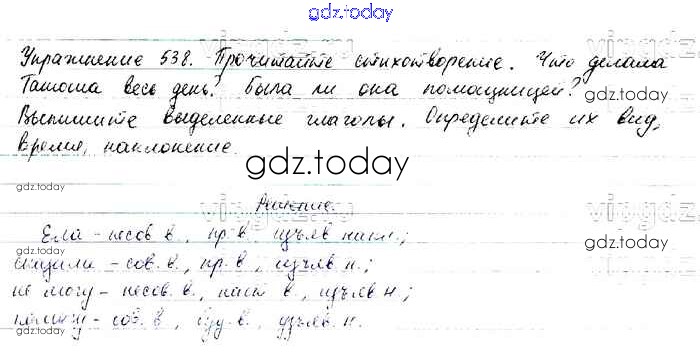 gdz.today
Упражнение 538. Прочитайте стихотворение. Что делала
Танюша весь день? Была ли она помощницей?
gdz.today
Выпишите выделенные глаголы. Определите их вид,
время, наклонение.
gdz.today
Решение.
gdz.today
Ела - несов. в., пр. в. изъяв накл.;
сказали - сов. в., пр. в., изъяв. н.;
не могу - несов. в., наст в., изъяв н.;
gdz.today
- сов. в., буд. в., изъяв. н.